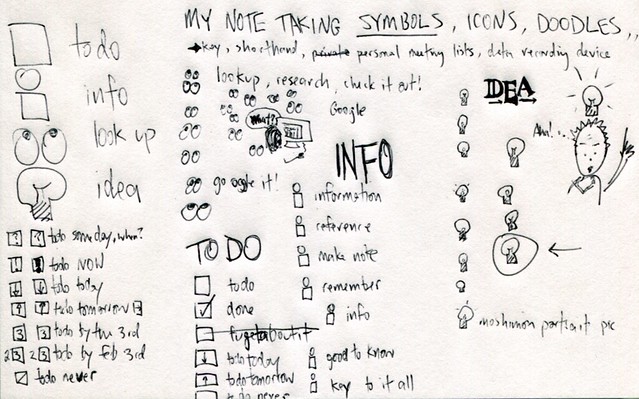 MY NOTE TAKING SYMBOLS, ICONS, DOODLES,,
key, shorthand, private personal meeting lists, data recording device
to do
info
look up
idea
todo someday, when?
todo NOW
todo today
todo tomorrow
3 3 todo by the 3rd
23 23 todo by feb 3rd
todo never
lookup, research, check it out!
Google
What?
go oogle it!
TO DO
todo
done
fugetaboutit
todo today
todo tomorrow
todo never
INFO
information
reference
make note
remember
info
good to know
key to it all
IDEA
Aha!...
moshimon portrait pic